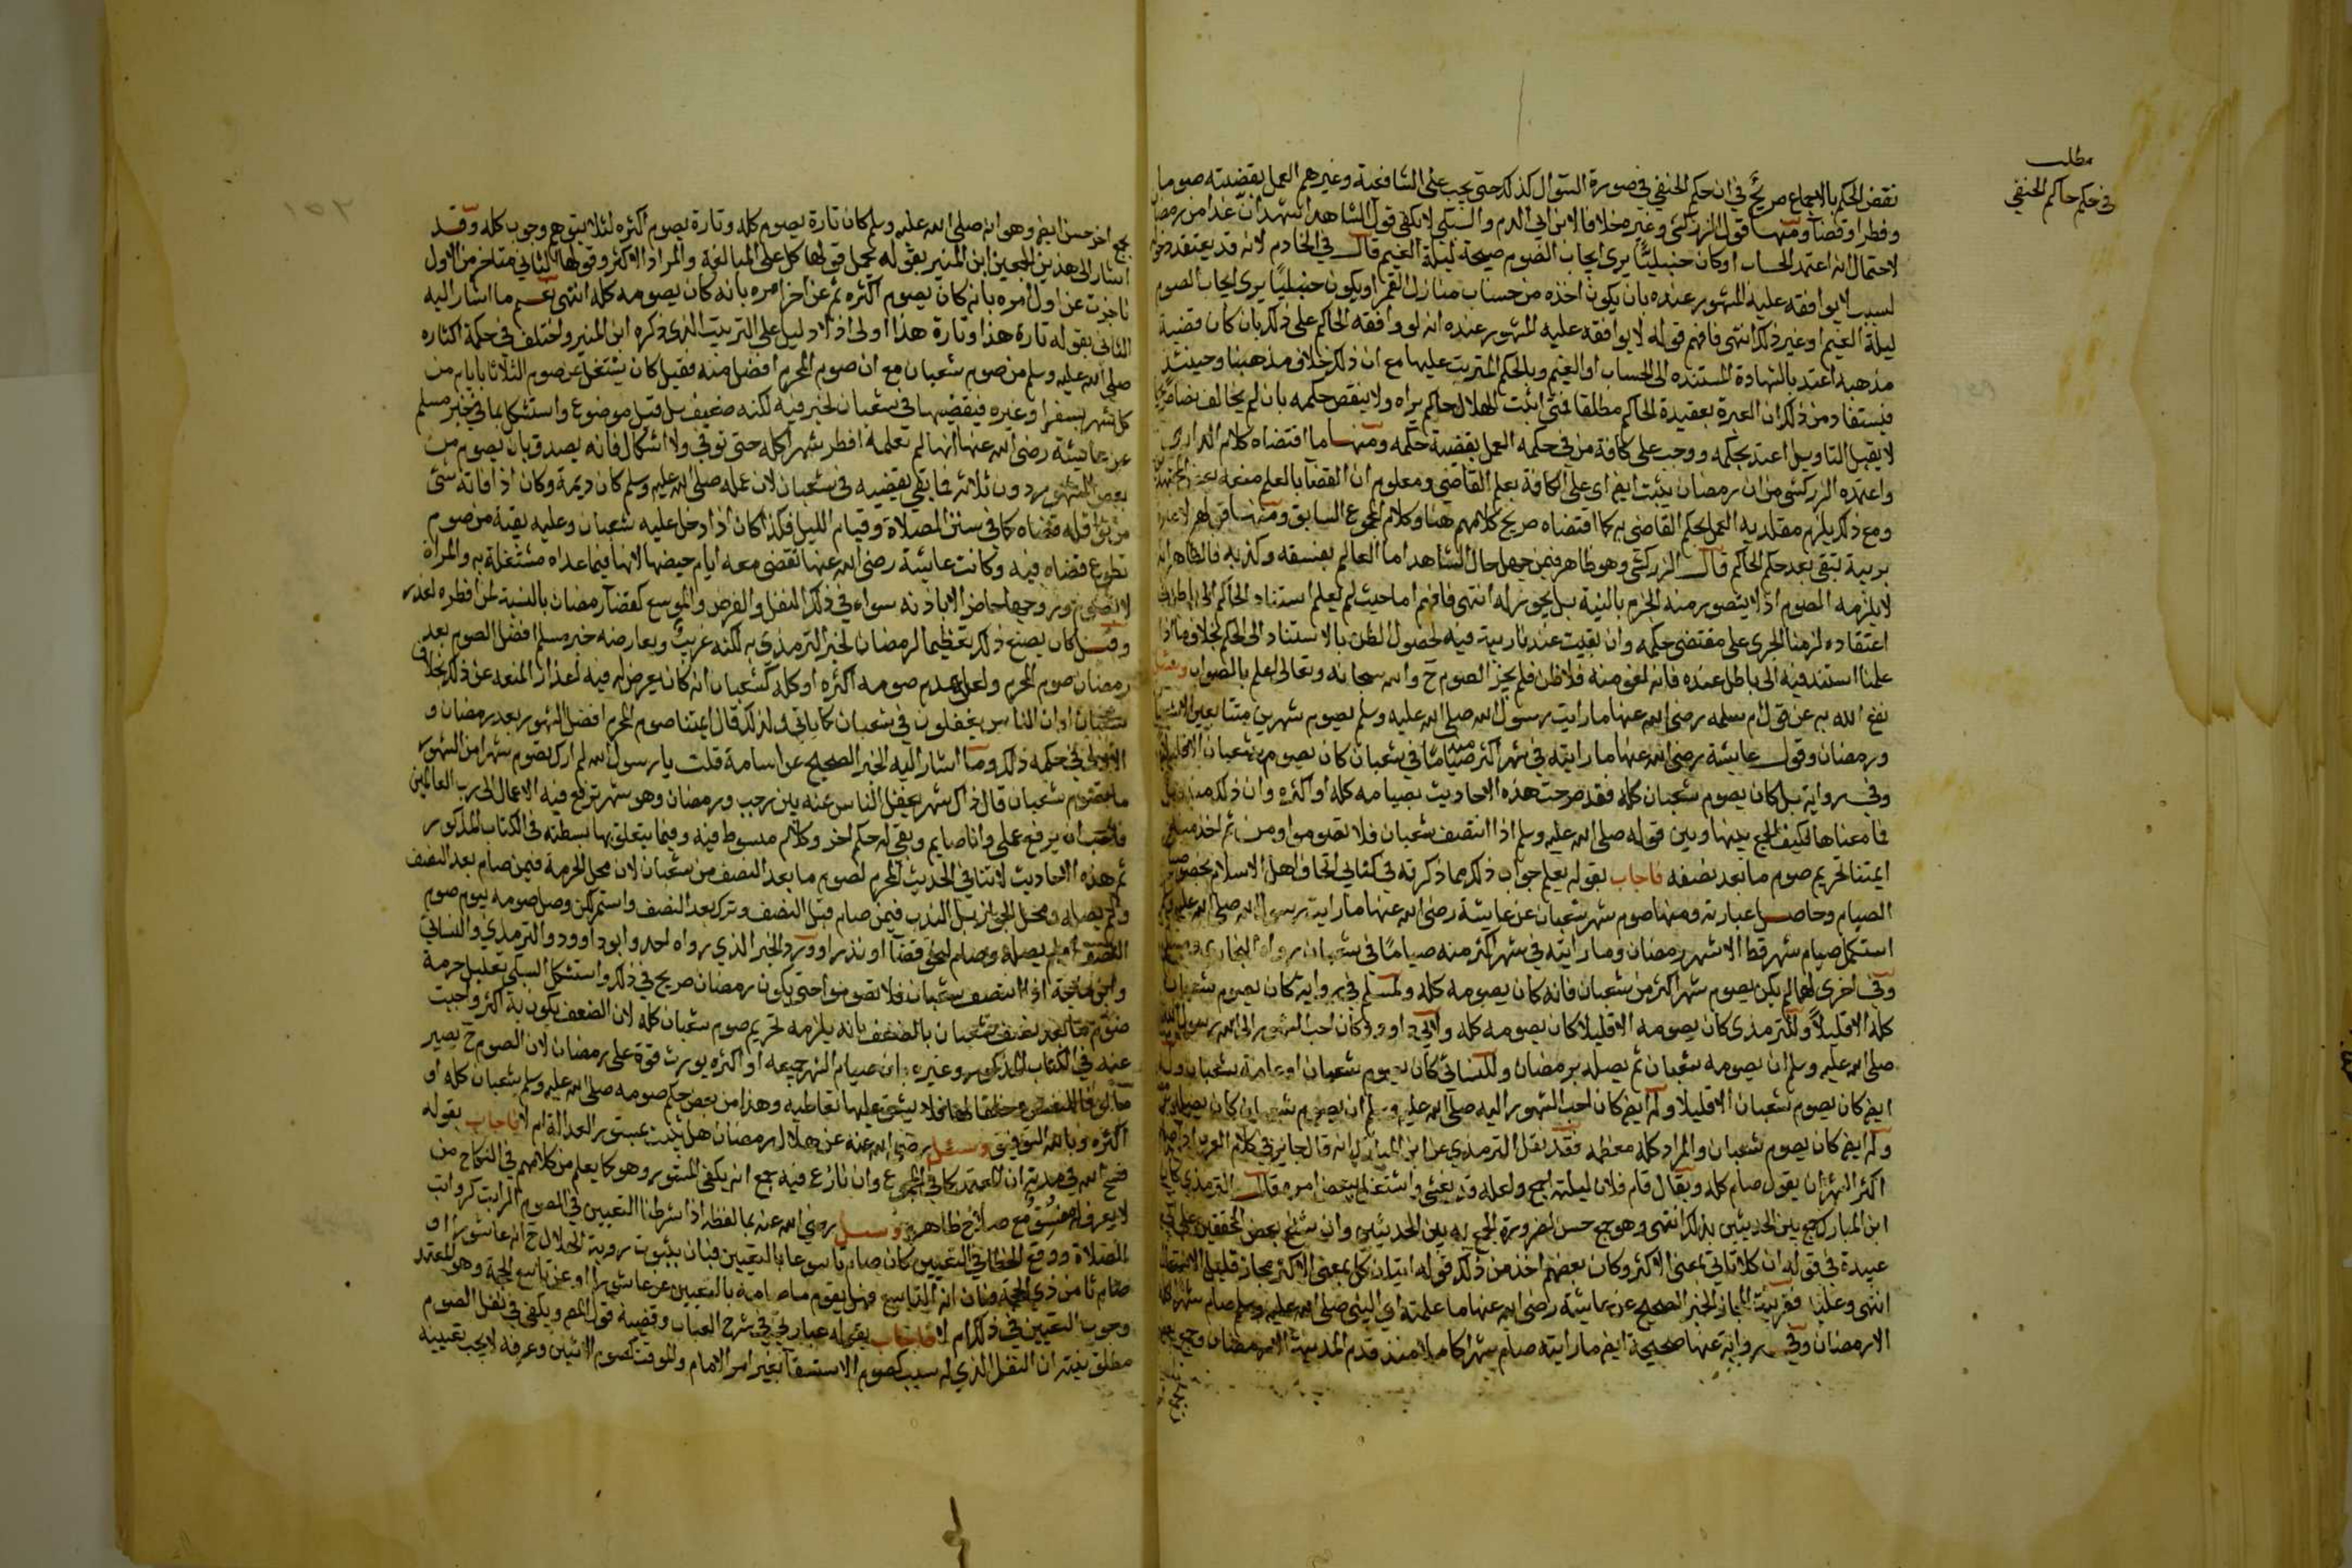 مطلب
في حكم حاكم الحنفي
نقض الحكم بالاجماع صريح في ان حكم الحنفي في صورة السؤال كذلك حتى يجب على الشافعية وغيرهم العمل بقضيته صوما
وفطرا وقضآ ومنها قول الزركشي وغيره خلافا لابن ابي الدم والسبكي لا يكفي قول الشاهد اشهد ان غدا من رمضان
لاحتمال انه اعتمد الحساب او كان حنبليا يرى ايجاب الصوم صبيحة ليلة الغيم قال في الخادم لانه قد يعتقد دخوله
لسبب لا يوافقه عليه المشهور عنده بان يكون اخذه من حساب منازل القمر او يكون حنبليا يرى ايجاب الصوم
ليلة الغيم او غير ذلك انتهى فافهم قوله لا يوافقه عليه المشهور عنده انه لو وافقه الحاكم على ذلك بان كان قضية
مذهبه اعتد بالشهادة المستنده الى الحساب او الغيم وبالحكم المترتب عليها مع ان ذلك خلاف مذهبنا وحينئذ
فيستفاد من ذلك ان العبرة بعقيدة الحاكم مطلقا فمتى اثبت الهلال حاكم يراه ولا ينقض حكمه بان لم يخالف نصا صريحا
لا يقبل التاويل اعتد بحكمه ووجب على كافة من في حكمه العمل بقضية حكمه ومنها ما اقتضاه كلام الدارمي
واعتمده الزركشي من ان رمضان يثبت ايض اي على الكافة بعلم القاضي ومعلوم ان القضآ بالعلم منعه بعض المجتهدين
ومع ذلك يلزم مقلديه العمل بحكم القاضي به كما اقتضاه صريح كلامهم هنا وكلام المجموع السابق ومنها قولهم لا عبرة
بريبة تبقى بعد حكم الحاكم قال الزركشي وهو ظاهر فيمن جهل حال الشاهد اما العالم بفسقه وكذبه فالظاهر انه
لا يلزمه الصوم اذ لا يتصور منه الجزم بالنية بل يجوز له انتهى فافهم اما حيث لم نعلم استناد الحاكم الى
اعتقاده لزمنا الجري على مقتضى حكمه وان بقيت عندنا ريبة فيه لحصول الظن بالاستناد الى الحكم بخلاف ما اذا
علمنا استند فيه الى باطل عنده فانه لغو منه فلا ظن فلم يجز الصوم ح والله سبحانه وتعالى اعلم بالصواب وسئل
نفع الله به عن قول ام سلمه رضي الله عنها ما رايت رسول الله صلى الله عليه وسلم يصوم شهرين متتابعين الا شعبان
ورمضان وقول عايشة رضي الله عنها ما رايته في شهر اكثر منه صياما في شعبان كان يصوم شعبان الا قليلا
وفي رواية بل كان يصوم شعبان كله فقد صرحت هذه الاحاديث بصيامه كله او اكثره وان ذلك مندوب
فما معناها فكيف الجمع بينها وبين قوله صلى الله عليه وسلم اذا انتصف شعبان فلا تصوموا ومن ثم اخذ منه
ايمتنا تحريم صوم ما بعد نصفه فاجاب بقوله يعلم جواب ذلك مما ذكرته في كتابي اتحاف اهل الاسلام بخصوص
الصيام وحاصل عبارته ومنها صوم شهر شعبان عن عايشة رضي الله عنها ما رايت رسول الله صلى الله عليه وسلم
استكمل صيام شهر قط الا شهر رمضان وما رايته في شهر اكثر منه صياما في شعبان رواه البخاري ومسلم
وفي اخرى لهما لم يكن يصوم شهرا اكثر من شعبان فانه كان يصومه كله ولمسلم في رواية كان يصوم شعبان
كله الا قليلا وللترمذي كان يصومه الا قليلا كان يصومه كله ولابي داوود كان احب الشهور الى رسول الله
صلى الله عليه وسلم ان يصومه شعبان ثم يصله برمضان وللنسائي كان يصوم شعبان او عامة شعبان وله
ايض كان يصوم شعبان الا قليلا وله ايض كان احب الشهور اليه صلى الله عليه وسلم ان يصوم شعبان كان يصله برمضان
وله ايض كان يصوم شعبان والمراد كله معظمه فقد نقل الترمذي عن ابن المبارك انه قال جايز في كلام العرب اذا صام
اكثر الشهر ان يقول صام كله ويقال قام فلان ليلته اجمع ولعله قد تعشى واشتغل ببعض امره قال الترمذي كان
ابن المبارك جمع بين الحديثين بذلك انتهى وهو جمع حسن لضرورة الجمع به بين الحديثين وان شنع بعض المحققين على
عبيدة في قوله ان كلا تاتي بمعنى الاكثر وكان بعضهم اخذ من ذلك قوله اتيان كل بمعنى الاكثر مجاز قليل الاستعمال
انتهى وعلينا فقرينة المجاز الخبر الصحيح عن عايشة رضي الله عنها ما علمته اي النبي صلى الله عليه وسلم صام شهرا كله
الا رمضان وفي رواية عنها صحيحة ايض ما رايته صام شهرا كاملا منذ قدم المدينة الا رمضان
٢٥١
جمع اخر حسن ايض وهو انه صلى الله عليه وسلم كان تارة يصوم كله وتارة يصوم اكثره لئلا يتوهم وجوب كله وقد
اشار الى هذين الجمعين ابن المنير بقوله يحمل قولها كل على المبالغة والمراد الاكثر وقولها الثاني متاخر من الاول
فاخبرت عن اول امره بانه كان يصوم اكثره ثم عن اخر امره بانه كان يصومه كله انتهى نعم ما اشار اليه
الثاني بقوله تارة هذا وتارة هذا اولى اذ لا دليل على الترتيب الذي ذكره ابن المنير واختلف في حكمة اكثاره
صلى الله عليه وسلم من صوم شعبان مع ان صوم المحرم افضل منه فقيل كان يشتغل عن صوم الثلاثة ايام من
كل شهر بسفر او غيره فيقضيها في شعبان لخبر فيه لكنه ضعيف بل قيل موضوع واستشكل بما في خبر مسلم
عن عايشة رضي الله عنها انها لم تعلمه افطر شهرا كله حتى توفي ولا اشكال فانه يصدق بان يصوم من
بعض الشهور دون ثلاثة فما بقي يقضيه في شعبان لان عمله صلى الله عليه وسلم كان ديمة وكان اذا فاته شئ
من نوافله قضاه كما في سنن الصلاة وقيام الليل فكذا كان اذا دخل عليه شعبان وعليه بقية من صوم
تطوع قضاه فيه وكانت عايشة رضي الله عنها تقضي معه ايام حيضها لانها فيما عداه مشتغلة به والمراة
لا تصوم وزوجها حاضر الا باذنه سواء في ذلك النفل والفرض والموسع كقضآ رمضان بالنسبة لمن افطره لعذر
وقيل كان يصنع ذلك تعظيما لرمضان لخبر الترمذي به لكنه غريب ويعارضه خبر مسلم افضل الصوم بعد
رمضان صوم المحرم ولعل عدم صومه اكثره او كله كشعبان انه كان يعرض له فيه اعذار تمنعه عن ذلك بخلاف
شعبان او ان الناس يغفلون في شعبان كما ياتي ولذلك قال ايمتنا صوم المحرم افضل الشهور بعد رمضان و
الاولى في حكمة ذلك وما اشار اليه الخبر الصحيح عن اسامة قلت يا رسول الله لم ارك تصوم شهرا من الشهور
ما تصوم شعبان قال ذاك شهر يغفل الناس عنه بين رجب ورمضان وهو شهر ترفع فيه الاعمال الى رب العالمين
فاحب ان يرفع عملي وانا صايم وبقي له حكم اخر وكلام مبسوط فيه وفيما يتعلق بها بسطته في الكتاب المذكور
ثم هذه الاحاديث لا تنافي الحديث المحرم لصوم ما بعد النصف من شعبان لان محل الحرمة فيمن صام بعد النصف
ولم يصله ومحل الجواز بل الندب فيمن صام قبل النصف وترك بعد النصف واستمر لكن وصل صومه بيوم صوم
النصف او لم يصله وصام لنحو قضآ او نذر او ورد والخبر الذي رواه احمد وابو داوود والترمذي والنسائي
وابن ماجة اذا انتصف شعبان فلا تصوموا حتى يكون رمضان صريح في ذلك واستشكل السبكي تعليل حرمة
صوم ما بعد نصف شعبان بالضعف بانه يلزمه تحريم صوم شعبان كله لان الضعف يكون به اكثر واجبت
عنه في الكتاب المذكور وغيره بان صيام الشهر جميعه او اكثره يورث قوة على رمضان لان الصوم ح يصير
مالوفا للنفس فلا يشق عليها تعاطيه وهذا من بعض حكم صومه صلى الله عليه وسلم شعبان كله او
اكثره وبالله التوفيق وسئل رضي الله عنه عن هلال رمضان هل يثبت بمستور العدالة ام لا فاجاب بقوله
فسح الله في مدته ان المعتمد كما في المجموع وان نازع فيه جمع انه يكفي المستور وهو كما يعلم من كلامهم في النكاح من
لا يعرف له مفسق مع صلاح ظاهره وسئل رضي الله عنه بما لفظه اذا شرطنا التعيين في الصوم الراتب كرواتب
الصلاة ووقع الخطا في التعيين كان صام تاسوعا بالتعيين فبان بثبوت روية الهلال ح انه عاشورا او
صام ثامن ذي الحجة فبان انه التاسع فهل يقوم ما صامه بالتعيين عن عاشورا او عن تاسع الحجة وهو المعتمد
وجوب التعيين في ذلك ام لا فاجاب بقوله عبارتي في شرح العباب وقضية قول المصنف ويكفي في نفل الصوم
مطلق نيته ان النفل الذي له سبب كصوم الاستسقآ بغير امر الامام والموقت كصوم الاثنين وعرفة لا يجب تعيينه